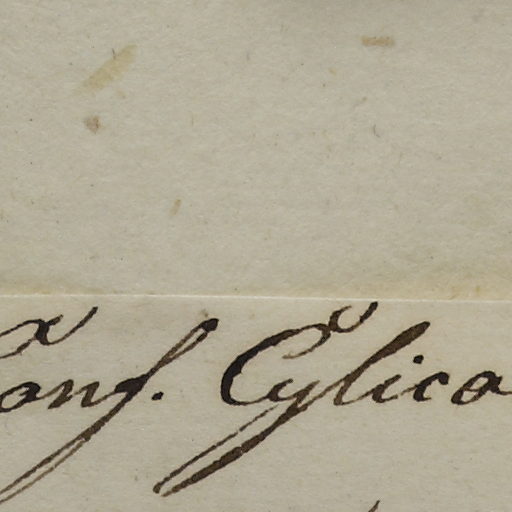 Conf. Cylico